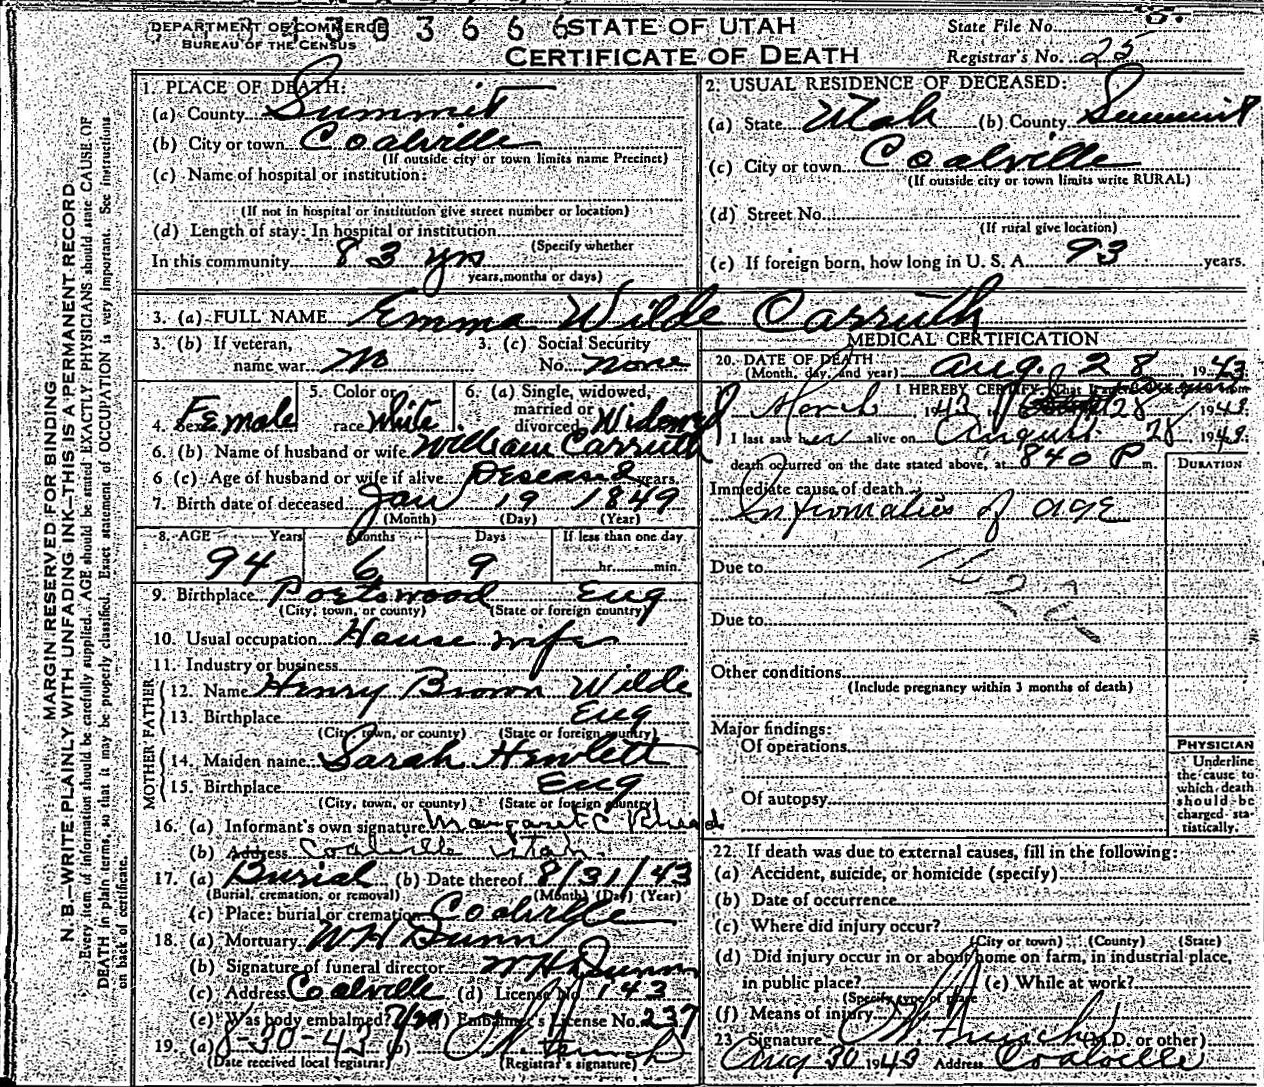 DEPARTMENT OF COMMERCE
BUREAU OF THE CENSUS
3 6 6 6
STATE OF UTAH
CERTIFICATE OF DEATH
State File No.
Registrar's No. 25
MARGIN RESERVED FOR BINDING
N. B.—WRITE PLAINLY WITH UNFADING INK—THIS IS A PERMANENT RECORD
Every item of information should be carefully supplied. AGE should be stated EXACTLY. PHYSICIANS should state CAUSE OF
DEATH in plain terms, so that it may be properly classified. Exact statement of OCCUPATION is very important. See instructions
on back of certificate.
1. PLACE OF DEATH:
(a) County Summit
(b) City or town Coalville
(If outside city or town limits name Precinct)
(c) Name of hospital or institution:
(If not in hospital or institution give street number or location)
(d) Length of stay: In hospital or institution
(Specify whether
In this community 83 yrs
years, months or days)
2. USUAL RESIDENCE OF DECEASED:
(a) State Utah (b) County Summit
(c) City or town Coalville
(If outside city or town limits write RURAL)
(d) Street No.
(If rural give location)
(e) If foreign born, how long in U. S. A. 93 years.
3. (a) FULL NAME Emma Wilde Carruth
3. (b) If veteran, name war No
3. (c) Social Security No. none
4. Sex Female
5. Color or race White
6. (a) Single, widowed, married or divorced Widowed
6. (b) Name of husband or wife William Carruth
6 (c) Age of husband or wife if alive Deseased years.
7. Birth date of deceased Jan 19 1849
(Month) (Day) (Year)
8. AGE Years Months Days If less than one day
94 6 9 hr. min.
9. Birthplace Portswood Eng
(City, town, or county) (State or foreign country)
10. Usual occupation House wife
11. Industry or business
FATHER
12. Name Henry Brown Wilde
13. Birthplace Eng
(City, town, or county) (State or foreign country)
MOTHER
14. Maiden name Sarah Hewlett
15. Birthplace Eng
(City, town, or county) (State or foreign country)
16. (a) Informant's own signature Margaret C Rhead
(b) Address Coalville Utah
17. (a) Burial (b) Date thereof 8/31/43
(Burial, cremation, or removal) (Month) (Day) (Year)
(c) Place: burial or cremation Coalville
18. (a) Mortuary WH Dunn
(b) Signature of funeral director WH Dunn
(c) Address Coalville (d) License No. 143
(e) Was body embalmed? Yes (f) Embalmer's License No. 237
19. (a) 8-30-43 (b)
(Date received local registrar) (Registrar's signature)
MEDICAL CERTIFICATION
20. DATE OF DEATH Aug. 28 1943
(Month, day, and year)
I HEREBY CERTIFY, That I
March 1943 to 28 1943.
I last saw her alive on August 28 1943.
death occurred on the date stated above, at 840 P m.
DURATION
Immediate cause of death
Infirmities of age
Due to
Due to
Other conditions
(Include pregnancy within 3 months of death)
Major findings:
Of operations
Of autopsy
PHYSICIAN
Underline
the cause to
which death
should be
charged sta-
tistically.
22. If death was due to external causes, fill in the following:
(a) Accident, suicide, or homicide (specify)
(b) Date of occurrence
(c) Where did injury occur?
(City or town) (County) (State)
(d) Did injury occur in or about home on farm, in industrial place,
in public place? (e) While at work?
(Specify type of place
(f) Means of injury
23. Signature (M.D. or other)
Aug 30 1943 Address Coalville